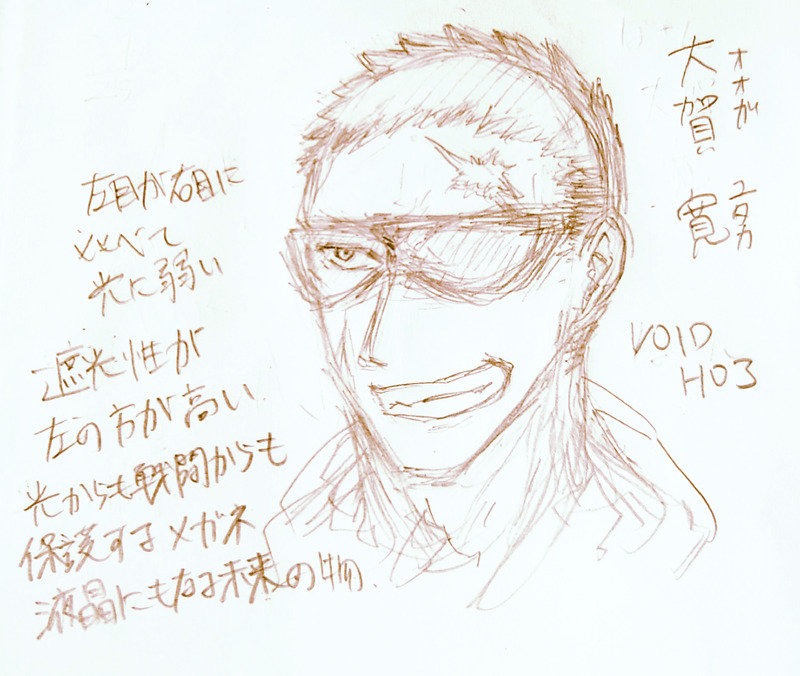 大賀 寛
オオガ ユタカ
VOID
H03
左目が右目に
比べて
光に弱い
遮光性が
左の方が高い
光からも戦闘からも
保護するメガネ
液晶にもなる未来の物.